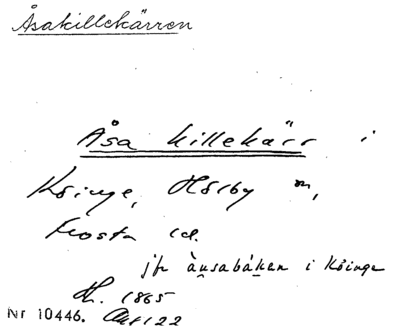 Åsakillekärren
Åsa killekärr i
Köinge, Hörby sn,
Frosta hd.
jfr àusabáken i Köinge
H. 1865
Nr 10446. Akt 122